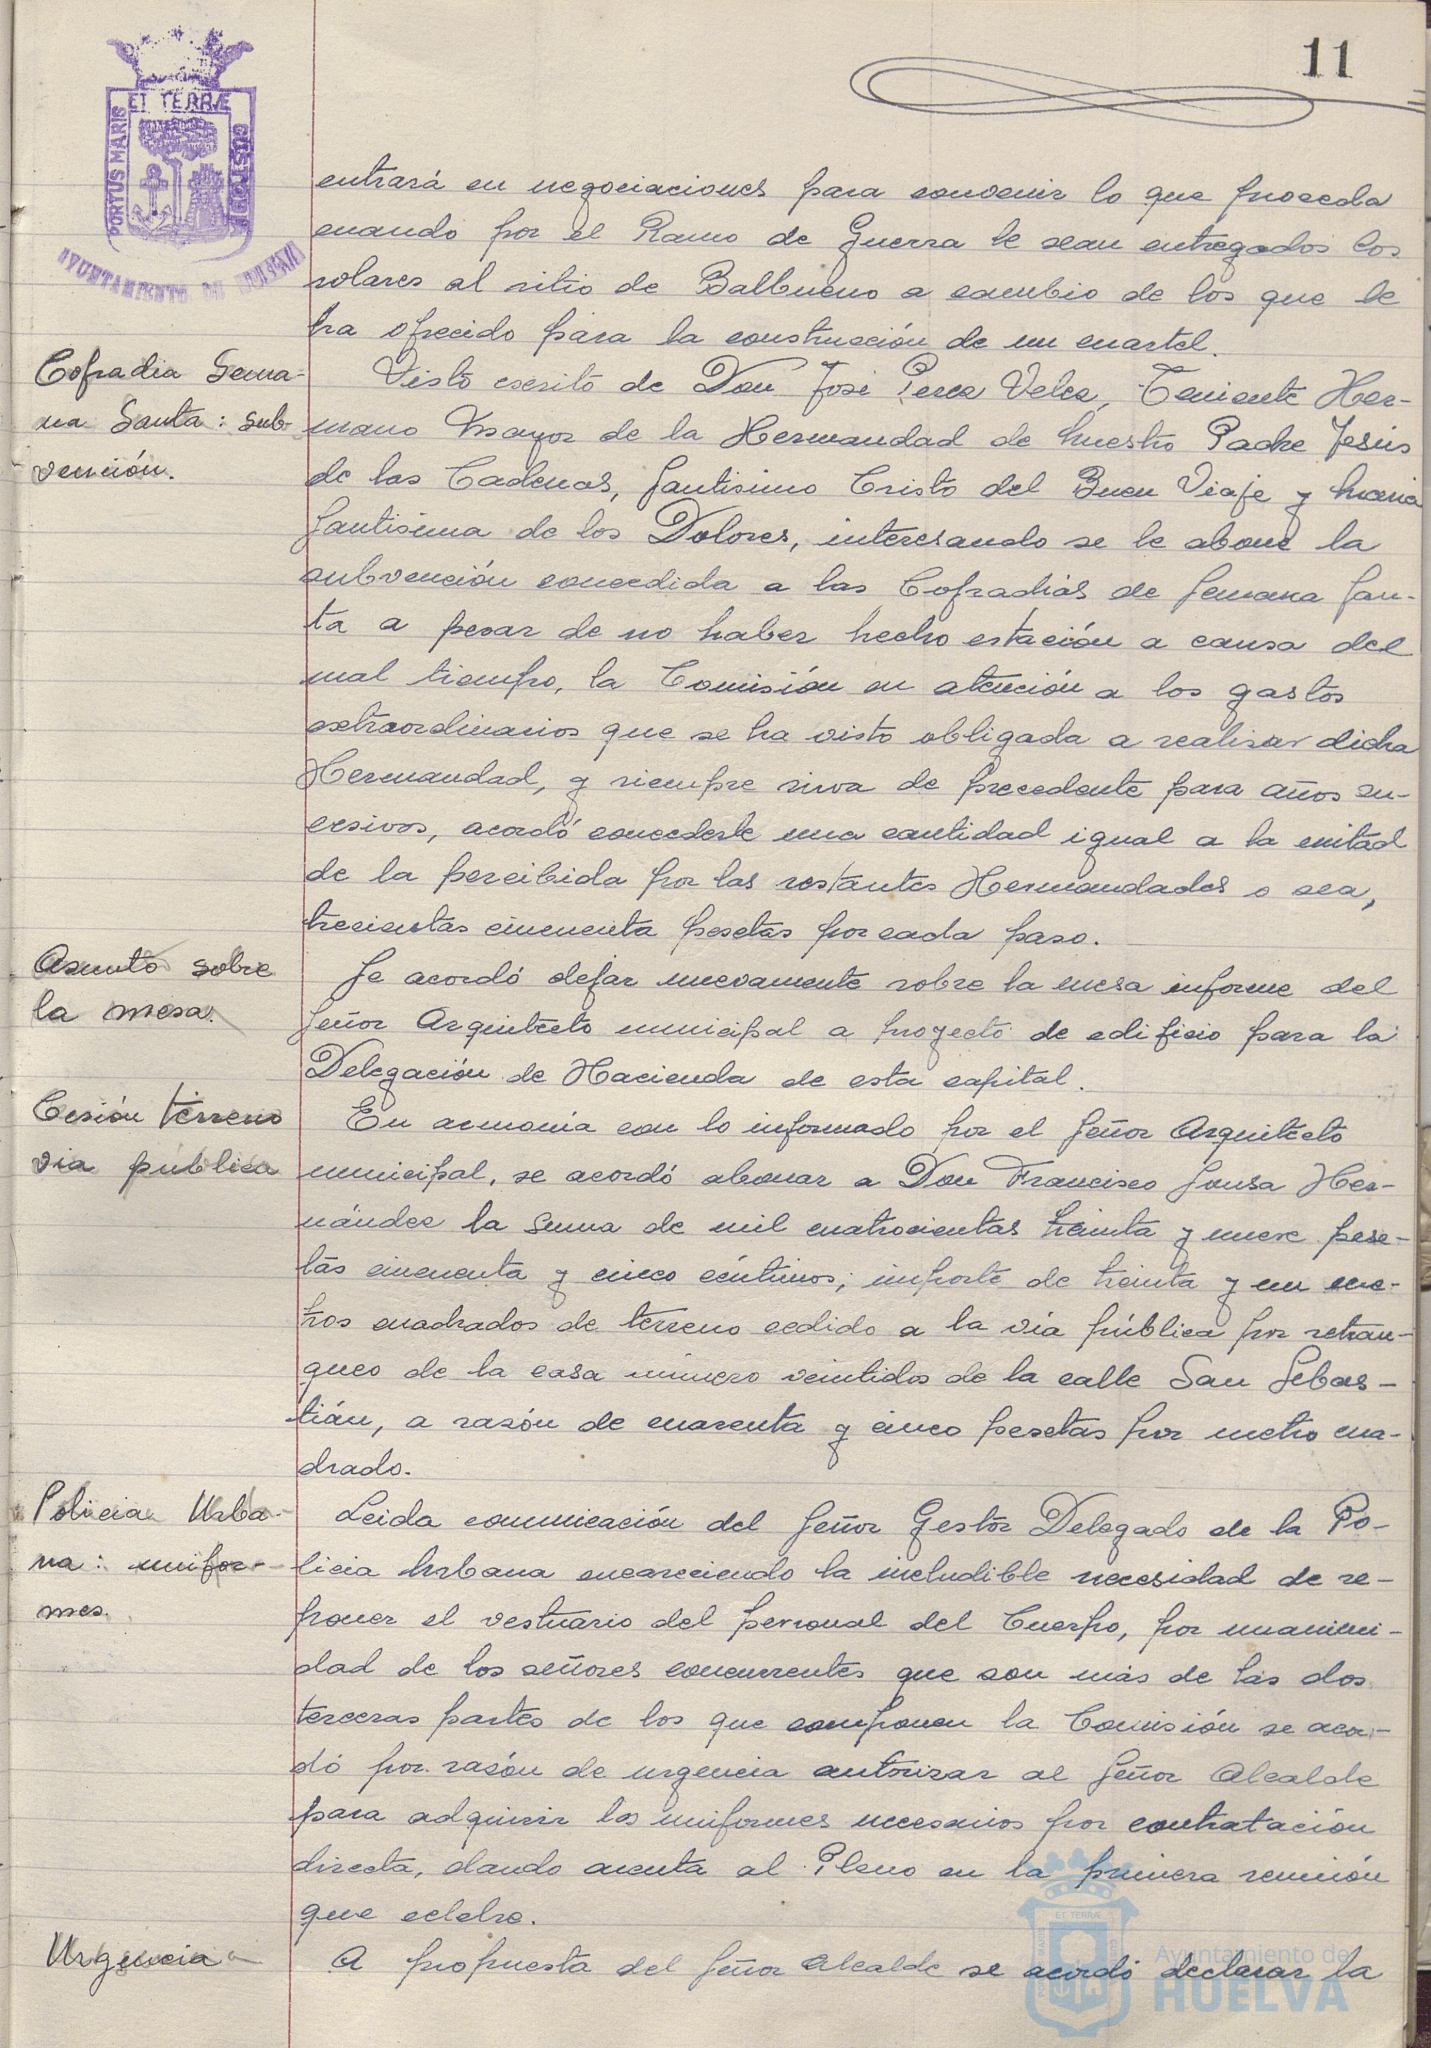 11
PORTUS MARIS
ET TERRÆ
CUSTODIA
AYUNTAMIENTO DE HUELVA
entrará en negociaciones para convenir lo que proceda
cuando por el Ramo de Guerra le sean entregados los
solares al sitio de Balbueno a cambio de los que le
ha ofrecido para la construcción de un cuartel.
Cofradia Sema-
na Santa: sub-
vención.
Visto escrito de Don José Perca Velez, Teniente Her-
mano Mayor de la Hermandad de Nuestro Padre Jesús
de las Cadenas, Santisimo Cristo del Buen Viaje y Maria
Santisima de los Dolores, interesando se le abone la
subvención concedida a las Cofradiás de Semana San-
ta a pesar de no haber hecho estación a causa del
mal tiempo, la Comisión en atención a los gastos
extraordinarios que se ha visto obligada a realizar dicha
Hermandad, y siempre sirva de precedente para años su-
cesivos, acordó concederle una cantidad igual a la mitad
de la percibida por las restantes Hermandades o sea,
trecientas cincuenta pesetas por cada paso.
Asunto sobre
la mesa.
Se acordó dejar nuevamente sobre la mesa informe del
Señor Arquitecto municipal a proyecto de edificio para la
Delegación de Hacienda de esta capital.
Cesión terreno
via pública
En armonia con lo informado por el Señor Arquitecto
municipal, se acordó abonar a Don Francisco Sousa Her-
nández la suma de mil cuatrocientas treinta y nueve pese-
tas cincuenta y cinco céntimos; importe de treinta y un me-
tros cuadrados de terreno cedido a la via pública por retran-
queo de la casa número veintidos de la calle San Sebas-
tián, a razón de cuarenta y cinco pesetas por metro cua-
drado.
Policia Urba-
na: unifor-
mes.
Leida comunicación del Señor Gestor Delegado de la Po-
licia Urbana encareciendo la includible necesidad de re-
poner el vestuario del personal del Cuerpo, por unanimi-
dad de los señores concurrentes que son más de las dos
terceras partes de los que componen la Comisión se acor-
dó por razón de urgencia autorizar al Señor Alcalde
para adquirir los uniformes necesarios por contratación
directa, dando cuenta al Pleno en la primera reunión
que celebre.
Urgencia
A propuesta del Señor Alcalde se acordó declarar la
Ayuntamiento de
HUELVA